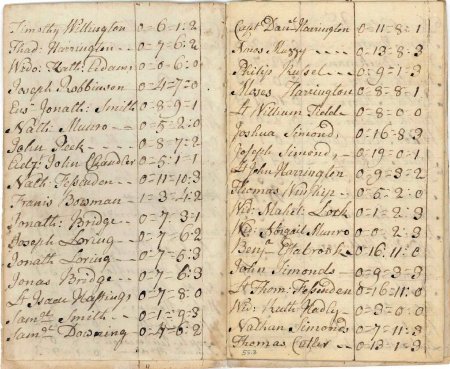 Timothy Wellington 0=6=1:2
Thad: Harrington 0=7=6:2
Wedo: Hath: 0=0=6:0
Joseph Robbinson 0=4=7=0
Ens: Jonath: Smith 0=8=9=1
Nath: Munro 0=5=2:0
John Peck 0=8=7:2
John Chandler 0=5=1=1
Nath: Fessenden 0=11=10:3
Franis Bowman 1=3=4:2
Jonath: Bridge 0=7=3=1
Joseph Loring 0=7=6:2
Jonath Loring 0=7=5:3
Jonas Bridge 0=7=6:3
Lt Isaac Hastings 0=7=8:0
Samll Smith 0=1=9:3
Samll Downing 0=4=6:2
Capt Danll Harrington 0=11=8=1
Amos Muzzy 0=13=8:3
Philip Russel 0=9=1=3
Moses Harrington 0=8=8=1
Lt William Tidd 0=8=0=0
Joshua Simond, 0=16=8:3
Joseph Simond, 0=19=0=1
Lt John Harrington 0=9=3=2
Thomas Winship 0=5=2:0
Wid: Mahet: Lock 0=1=2:3
Wid: Abigail Munro 0=0=2:3
Benja Estabrook 0=16:11:0
John Simonds 0=9=3=3
Lt Thom: Fessenden 0=16=11:0
Wid: Ruth Hadly 0=3=0=0
Nathan Simonds 0=7=11:3
Thomas Cutler 0=13=1=3